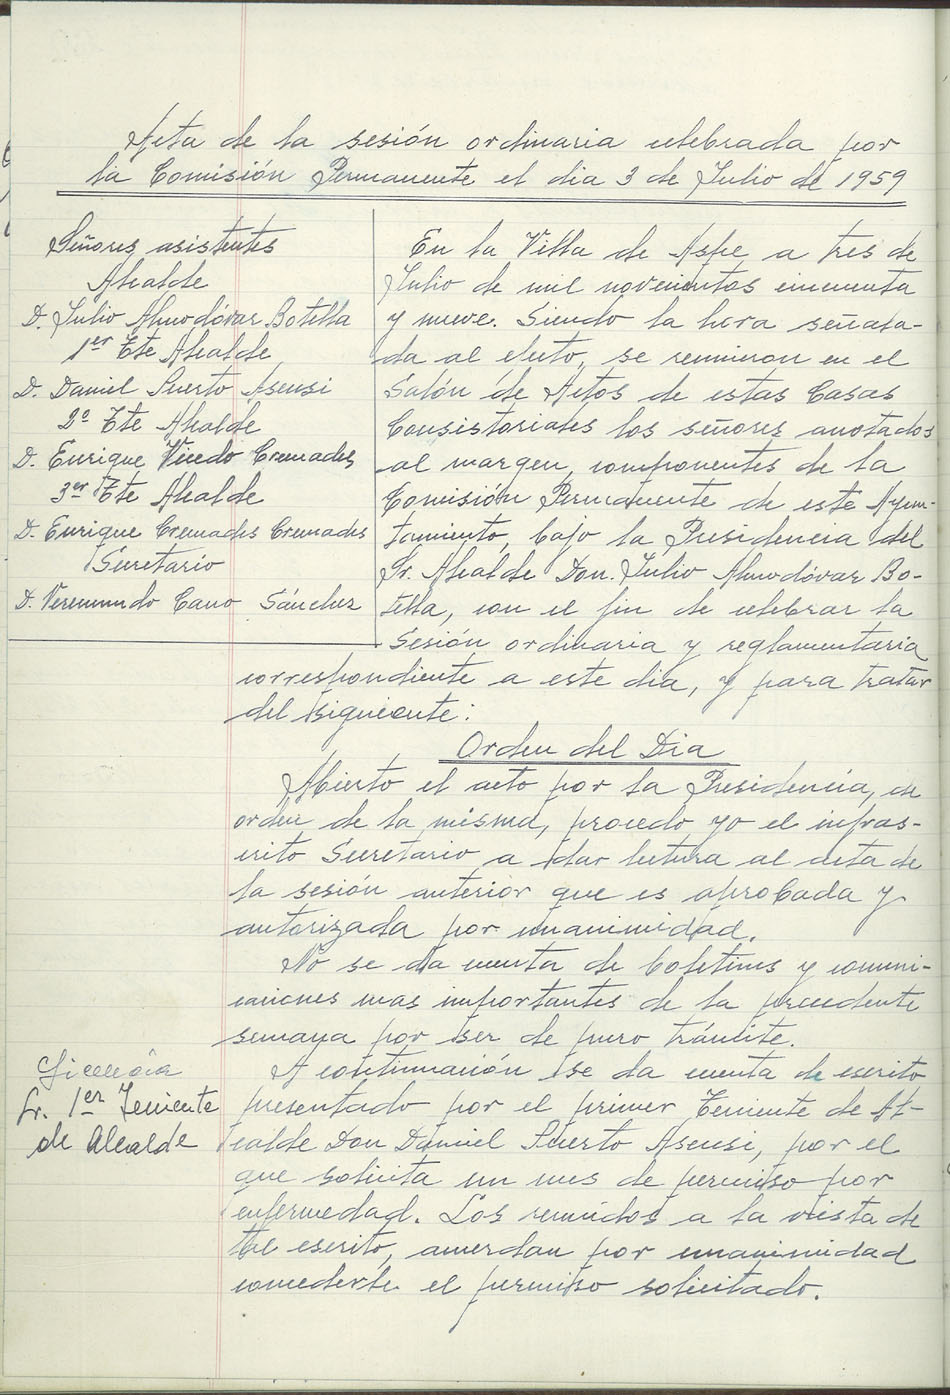 Acta de la sesión ordinaria celebrada por
la Comisión Permanente el dia 3 de Julio de 1959
Señores asistentes
Alcalde
D. Julio Almodóvar Botella
1er Tte Alcalde
D. Daniel Puerto Asensi
2º Tte Alcalde
D. Enrique Vicedo Cremades
3er Tte Alcalde
D. Enrique Cremades Cremades
Secretario
D. Veremundo Cano Sánchez
En la Villa de Aspe a tres de
Julio de mil novecientos cincuenta
y nueve. Siendo la hora señala-
da al efecto, se reunieron en el
Salón de Actos de estas Casas
Consistoriales los señores anotados
al margen, componentes de la
Comisión Permanente de este Ayun-
tamiento, bajo la Presidencia del
Sr. Alcalde Don Julio Almodóvar Bo-
tella, con el fin de celebrar la
Sesión ordinaria y reglamentaria
correspondiente a este dia, y para tratar
del siguiente:
Orden del Dia
Abierto el acto por la Presidencia, de
orden de la misma, procedo yo el infras-
crito Secretario a dar lectura al acta de
la sesión anterior que es aprobada y
autorizada por unanimidad.
No se da cuenta de boletines y comuni-
caciones mas importantes de la precedente
semana por ser de puro trámite.
Licencia
Sr. 1er Teniente
de Alcalde
A continuación se da cuenta de escrito
presentado por el primer Teniente de Al-
calde Don Daniel Puerto Asensi, por el
que solicita un mes de permiso por
enfermedad. Los reunidos a la vista de
tal escrito, acuerdan por unanimidad
concederle el permiso solicitado.